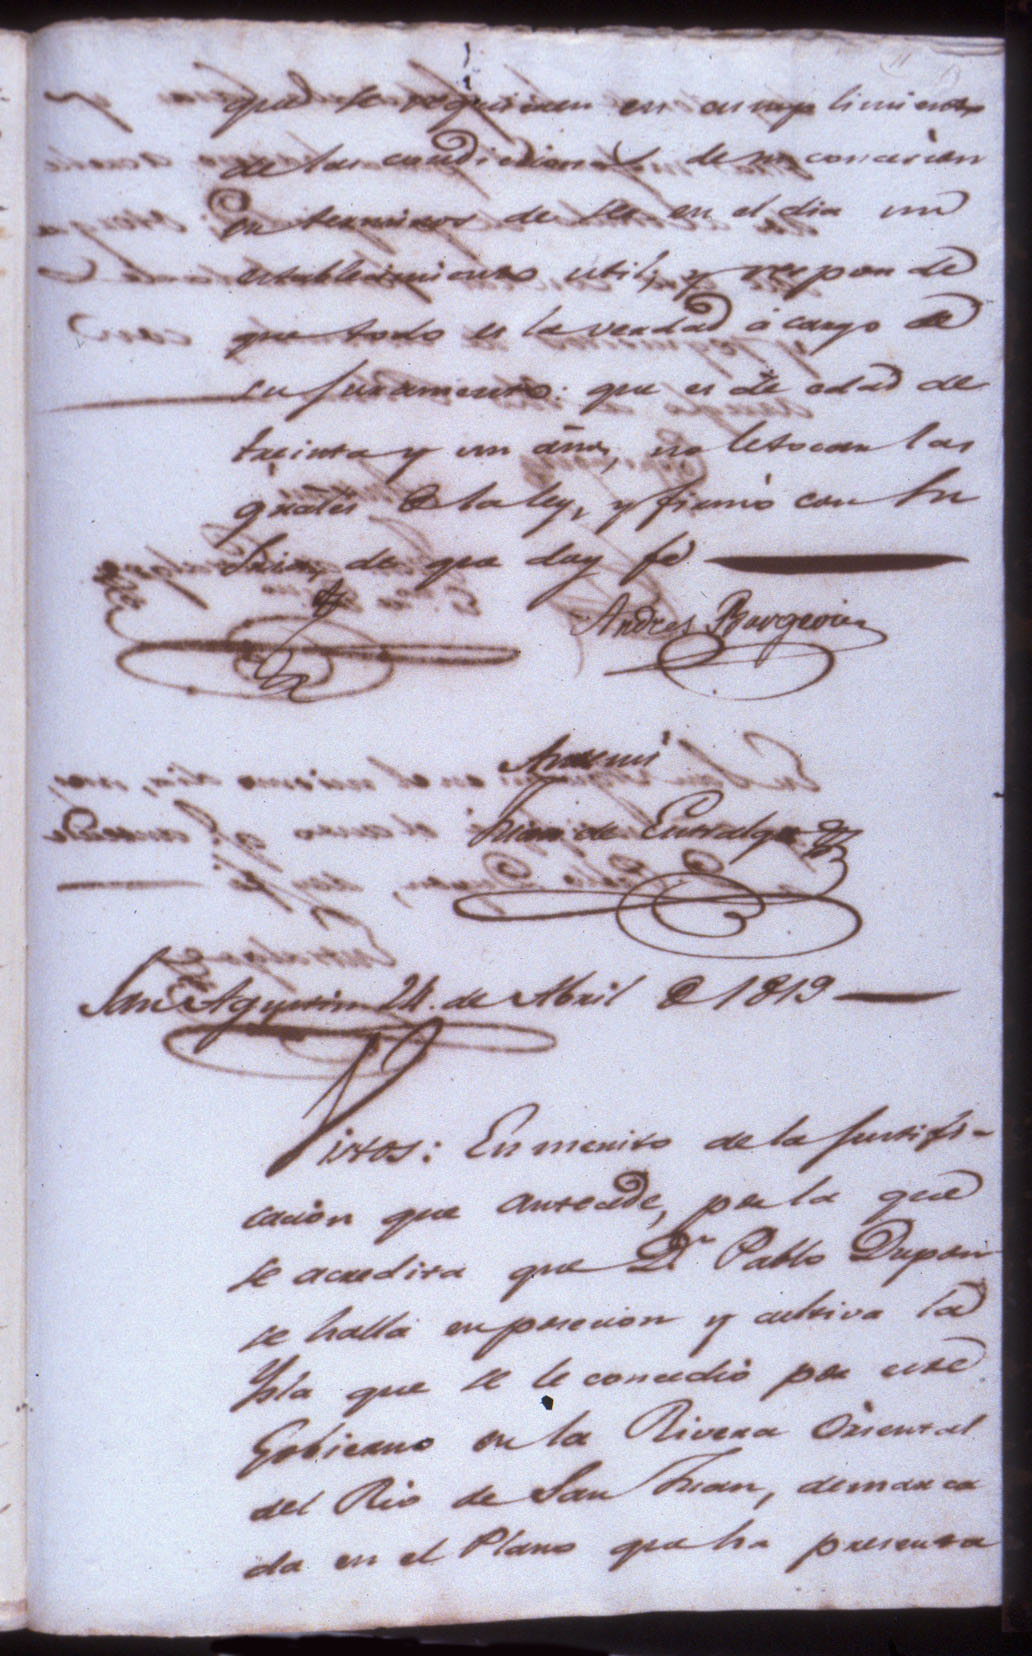 que se requieren en cumplimiento
de las condiciones de su concesion
En terminos de ser en el dia un
establecimiento util; y responde
que todo es la verdad à cargo de
su juramento: que es de edad de
treinta y un años, no le tocan las
grales de la ley, y firmó con su
Sria, de que doy fé
Andres Burgevin
Ante mi
Juan de Entralgo
San Agustin 24. de Abril de 1819
Vistos: En merito de la justifi-
cacion que antecede, por la que
se acredita que Dn Pablo Dupon
se halla en posecion y cultiva la
Ysla que se le concedio por este
Gobierno en la Rivera Oriental
del Rio de San Juan, demarca
da en el Plano que ha presenta